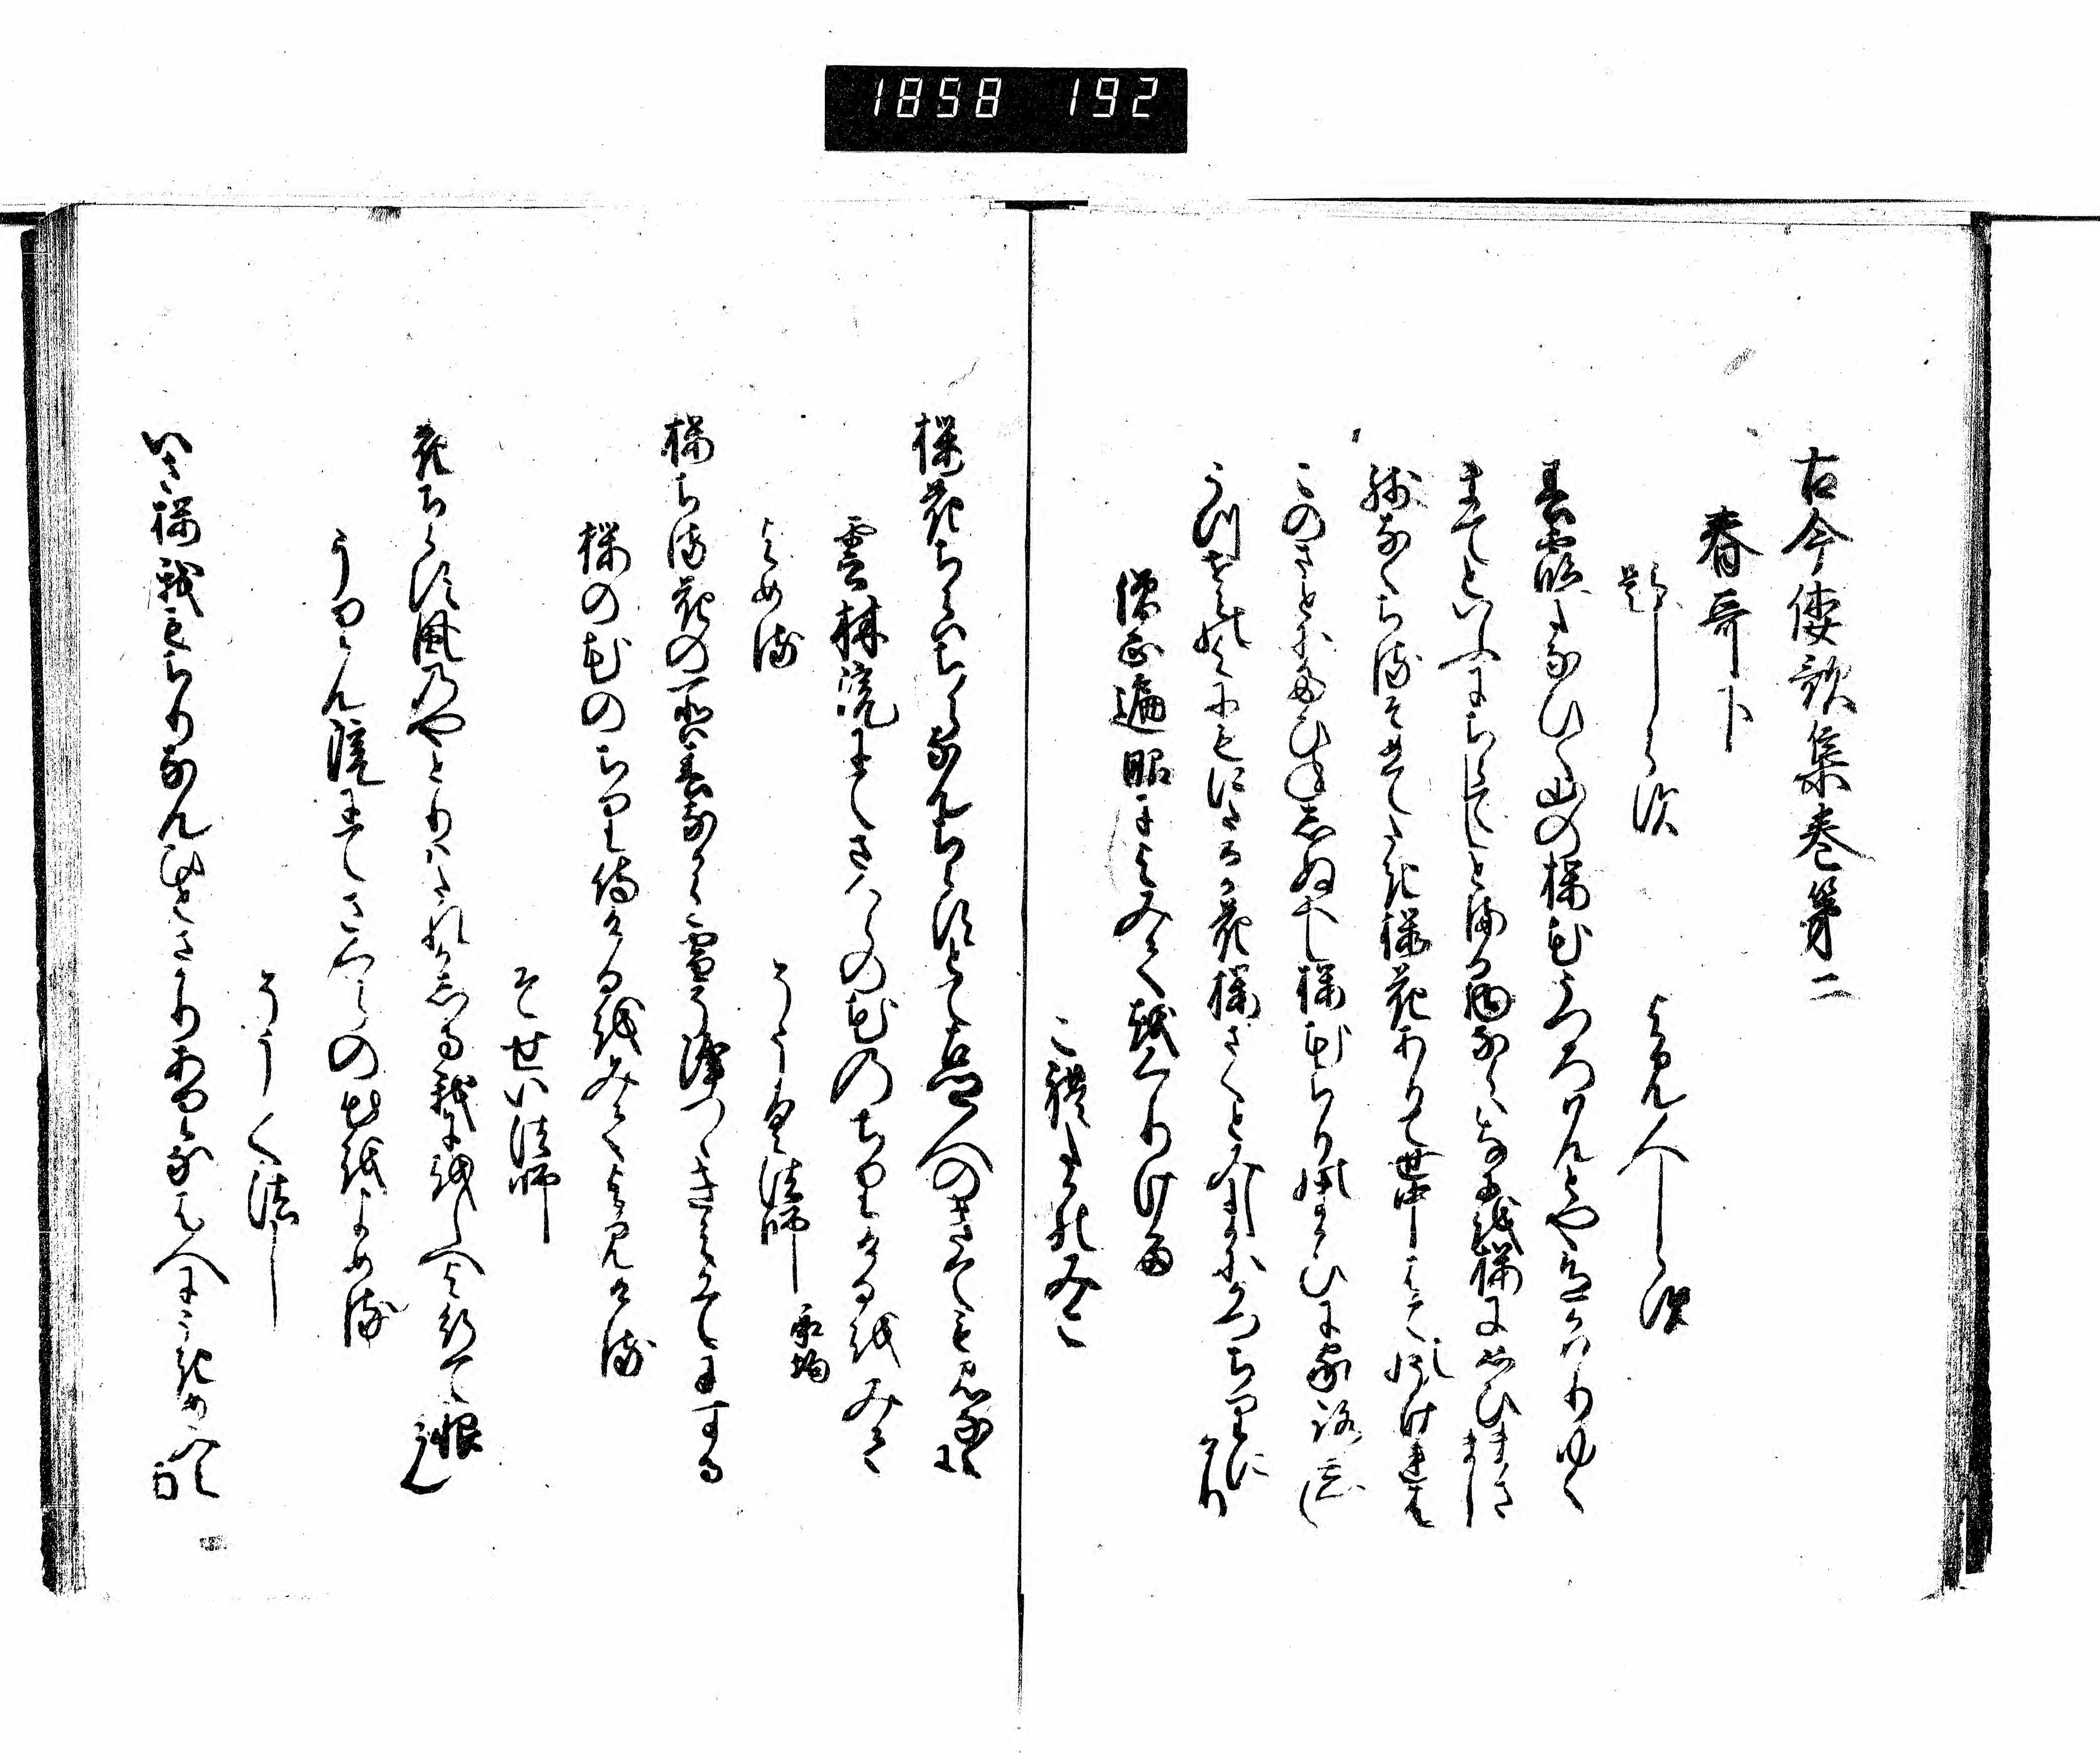 1858 192
古今倭歌集巻第二
春哥下
題しらす よみ人しらす
春霞たなひく山の桜花うつろはんとや色かはりゆく
まてといふにちらてしとまる物ならはなにを桜に思ひまさまし
残なくちるそめてたき桜花ありて世中はてのうけれは
このさとにたひねしぬへし桜花ちりのまかひに家路忘
うつせみの世にもにたるか花桜さくとみしまにかつちりにけり
僧正遍昭によみてをくりける
これたかのみこ
桜花ちらはちらなんちらすとて古里人のきても見なくに
雲林院にてさくらの花のちりけるをみて
よめる そうく法師 承均
桜ちる花の所は春なから雪そふりつゝきえかてにする
桜の花のちり侍けるをみてよみける
そせい法師
花ちらす風のやとりはたれかしる我にをしへよ行て恨みん
うりん院にてさくらの花をよめる
そうく法し
いさ桜我もちりなんひとさかりありなは人にうきめみえなん